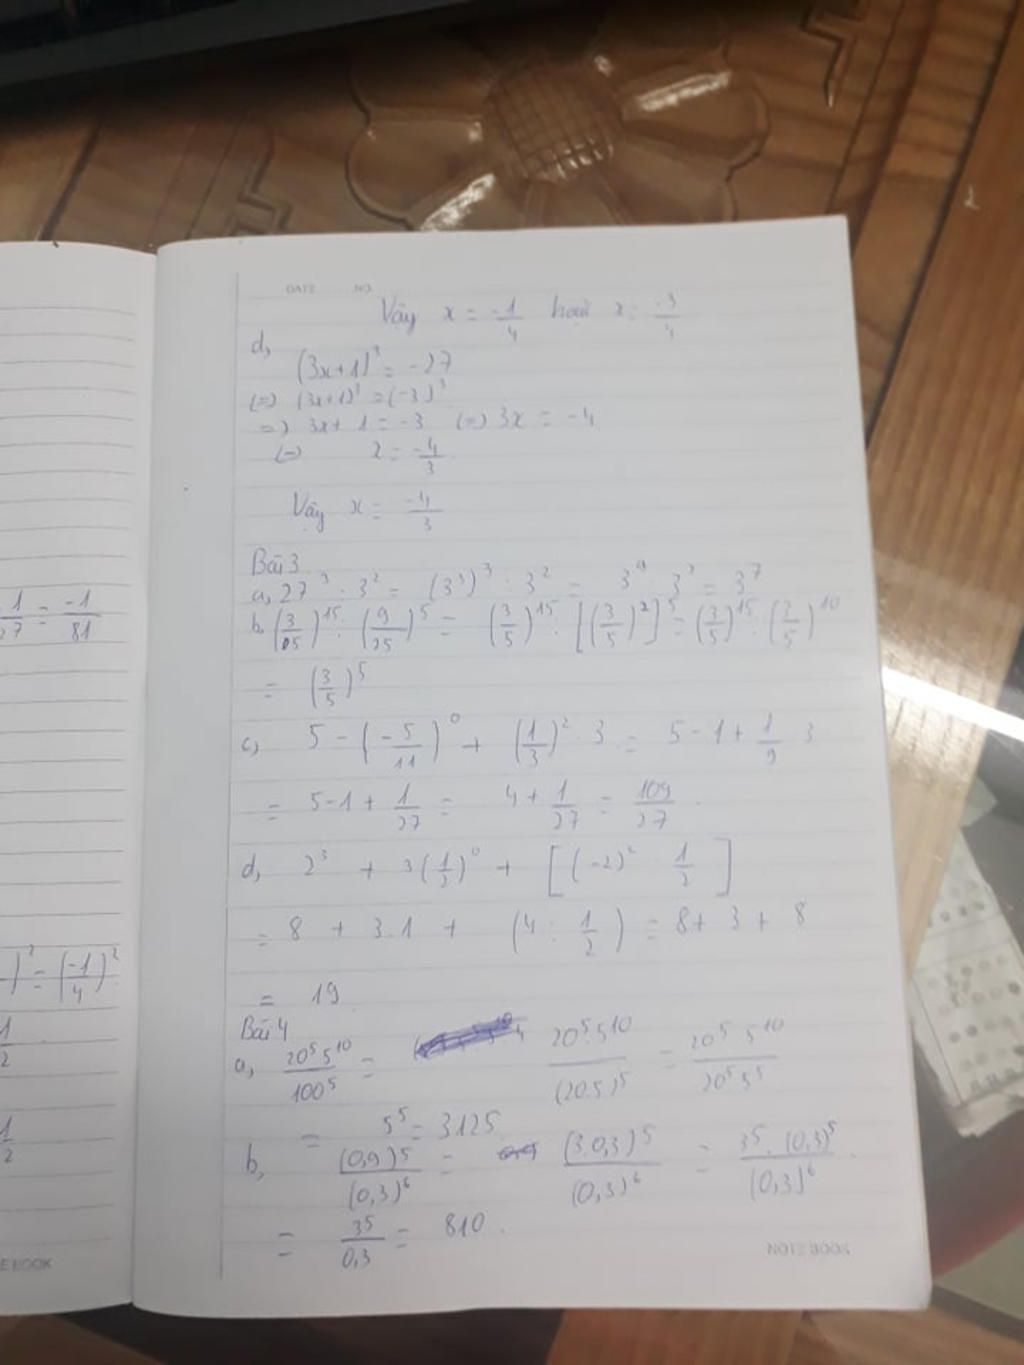 DATE NO.
Vậy x = -1/4 hoặc x = -3/4
d,
(3x+1)³ = -27
(=) (3x+1)³ = (-3)³
=) 3x+1 = -3 (=) 3x = -4
(=) x = -4/3
Vậy x = -4/3
Bài 3
a, 27³ : 3² = (3³)³ : 3² = 3⁹ : 3² = 3⁷
b, (3/5)¹⁵ : (9/25)⁵ = (3/5)¹⁵ : [(3/5)²]⁵ = (3/5)¹⁵ : (3/5)¹⁰
= (3/5)⁵
c, 5 - (-5/11)⁰ + (1/3)² : 3 = 5 - 1 + 1/9 : 3
= 5-1 + 1/27 = 4 + 1/27 = 109/27
d, 2³ + 3(1/2)⁰ + [(-2)² : 1/2]
= 8 + 3.1 + (4 : 1/2) = 8 + 3 + 8
= 19
Bài 4
a, 20⁵5¹⁰/100⁵ = 20⁵.5¹⁰/(20.5)⁵ = 20⁵5¹⁰/20⁵5⁵
= 5⁵ = 3125
b, (0,9)⁵/(0,3)⁶ = (3.0,3)⁵/(0,3)⁶ = 3⁵.(0,3)⁵/(0,3)⁶
= 3⁵/0,3 = 810.
NOTE BOOK
1/27 = -1/81
)² = (-1/4)²
1/2
1/2
E BOOK